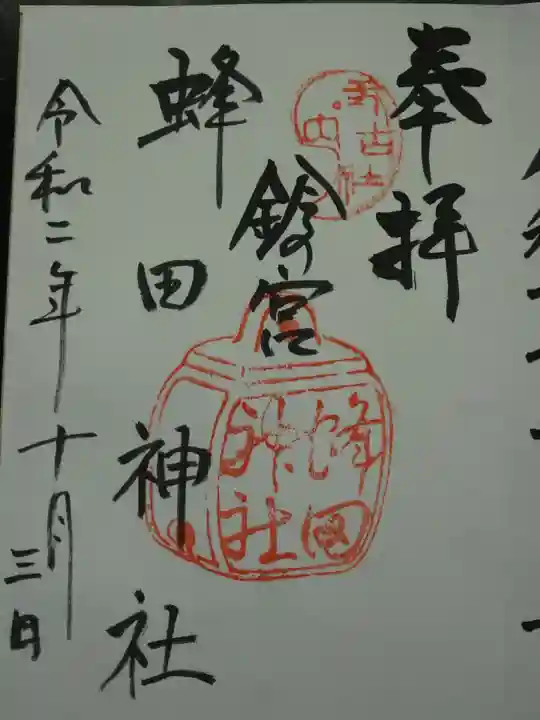 奉拝
鈴の宮
蜂田神社
令和二年十月三日
蜂田
神社